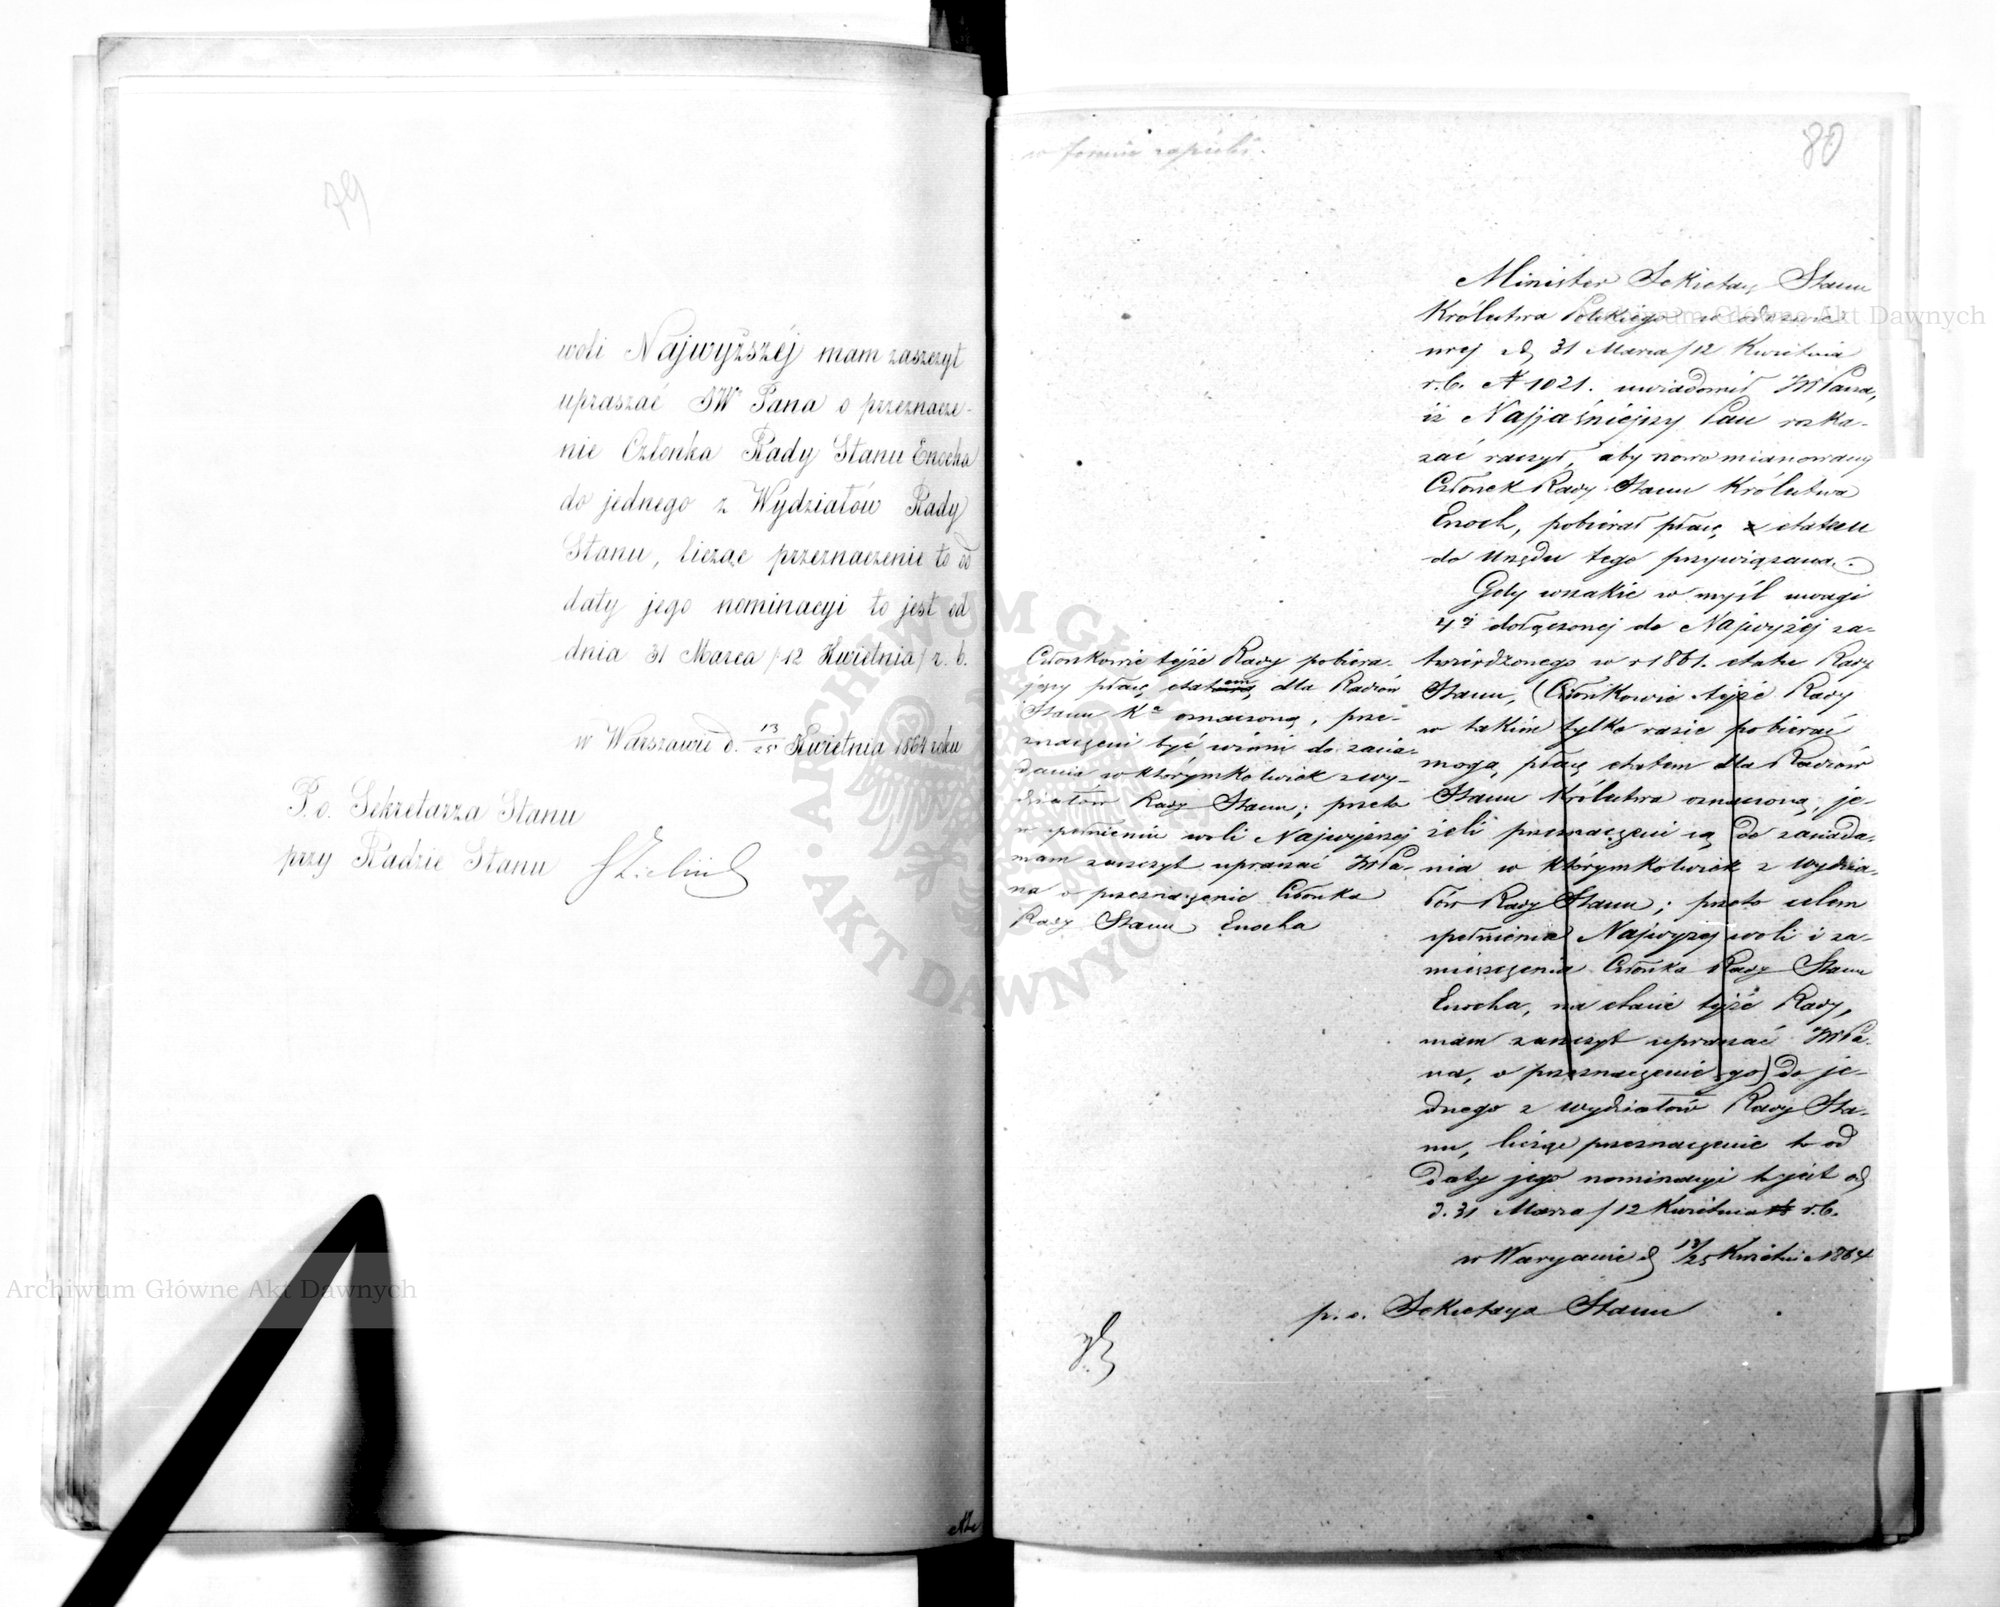 79
woli Najwyższéj mam zaszczyt
upraszać JW Pana o przeznacze-
nie Członka Rady Stanu Enocha
do jednego z Wydziałów Rady
Stanu, licząc przeznaczenie to od
daty jego nominacyi to jest od
dnia 31 Marca /12 Kwietnia/ r. b.
w Warszawie d. 13/25 Kwietnia 1864 roku
P. o. Sekretarza Stanu
przy Radzie Stanu
80
w formie
Minister Sekretarz Stanu
Królestwa Polskiego w odezwie
swej z d. 31 Marca /12 Kwietnia
r.b. N 1021. uwiadomił JW Pana,
iż Najjaśniejszy Pan rozka-
zać raczył, aby nowo mianowany
Członek Rady Stanu Królestwa
Enoch, pobierał płacę etatem
do Urzędu tego przywiązaną.
Gdy wszakże w myśl uwagi
4éj dołączonej do Najwyżéj za-
twierdzonego w r 1861. etatu Rady
Stanu, (Członkowie tejże Rady
w takim tylko razie pobierać
mogą, płacę etatem dla Radców
Stanu Królestwa oznaczoną, je-
żeli przeznaczeni są do zasiada-
nia w którymkolwiek z wydzia-
łów Rady Stanu; przeto celem
spełnienia Najwyższej woli i za-
mieszczenia Członka Rady Stanu
Enocha, na etacie tejże Rady,
mam zaszczyt upraszać JW Pa-
na, o przeznaczenie go) do je-
dnego z wydziałów Rady Sta-
nu, licząc przeznaczenie to od
daty jego nominacyi to jest od
d. 31 Marca /12 Kwietnia r.b.
w Warszawie d. 13/25 Kwietnia 1864
p. o. Sekretarza Stanu
Członkowie tejże Rady pobiera-
jący płacę, etatem dla Radców
Stanu Kr oznaczoną, prze-
znaczeni być winni do zasia-
dania w którymkolwiek z wy-
działów Rady Stanu; przeto
w spełnieniu woli Najwyższej
mam zaszczyt upraszać JW Pa-
na o przeznaczenie Członka
Rady Stanu Enocha
Archiwum Główne Akt Dawnych
Archiwum Główne Akt Dawnych
ARCHIWUM GŁÓWNE AKT DAWNYCH